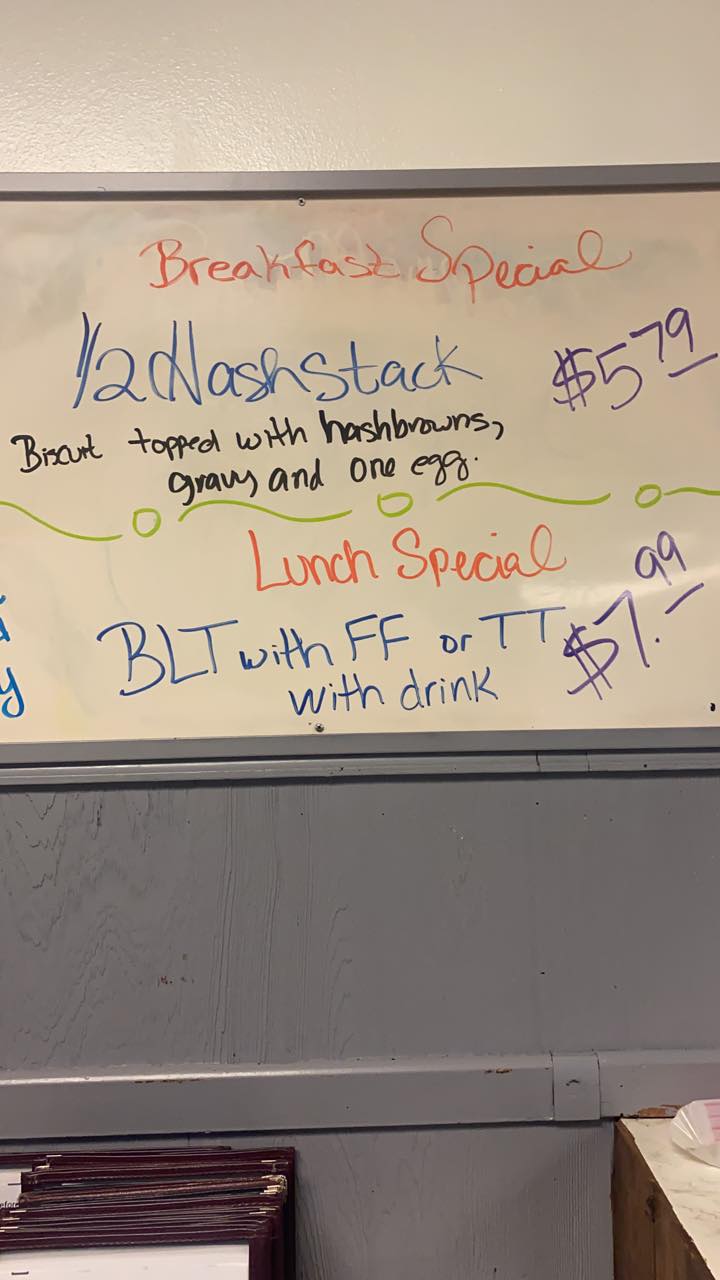 Breakfast Special
1/2 Hashstack $5.79
Biscuit topped with hashbrowns,
gravy and one egg.
Lunch Special
BLT with FF or TT $7.99
with drink